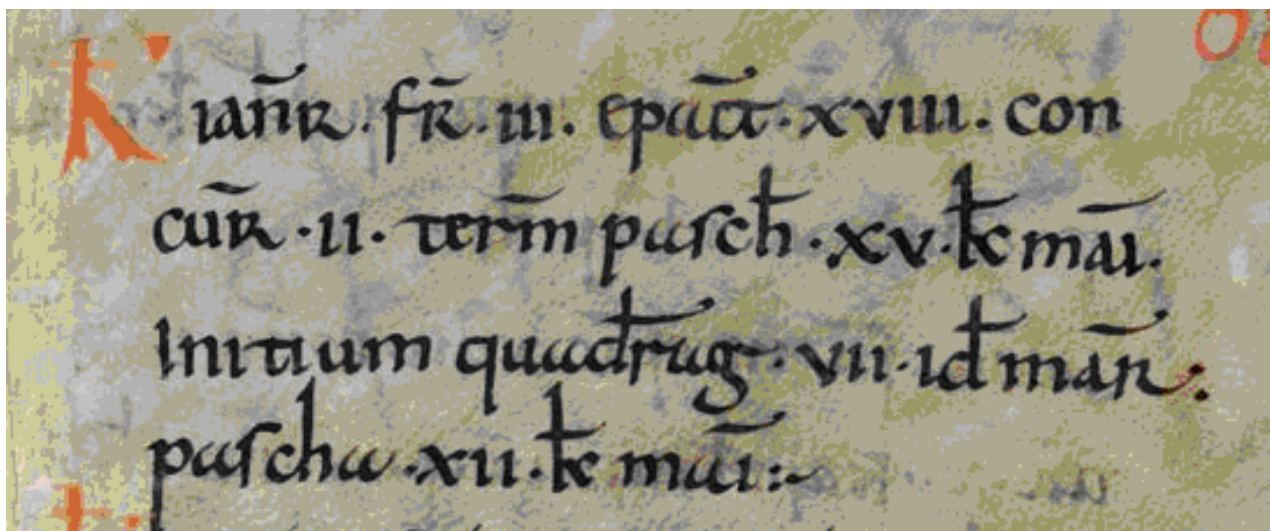 K ian̄r. fr̄. iii. epac̄t. xviii. con
cur̄. ii. term̄ pasch̄. xv. kł māi.
Initium quadrag̅. vii. id̄ mār:
pascha. xii. kł māi:~